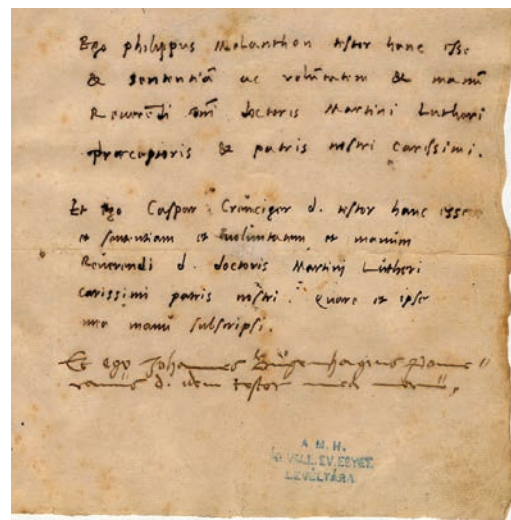 Ego philippus Melanthon testor hanc esse
& sententiã ac volũtatem & manũ
Reuerẽdi dñi doctoris Martini Lutheri
præceptoris & patris nostri carissimi.
Et ego Caspar Creüciger d. testor hanc esse
et sententiam et voluntatem et manüm
Reüerendi d. doctoris Martinj Lütheri
carissimi patris nostri. Quare et ipse
mea manü subscripsi.
Et ego Johannes Bügenhagius Pome"
ranüs d. idem testor mea manü,
A. M. H.
EV. EGYET.
LEVÉLTÁRA